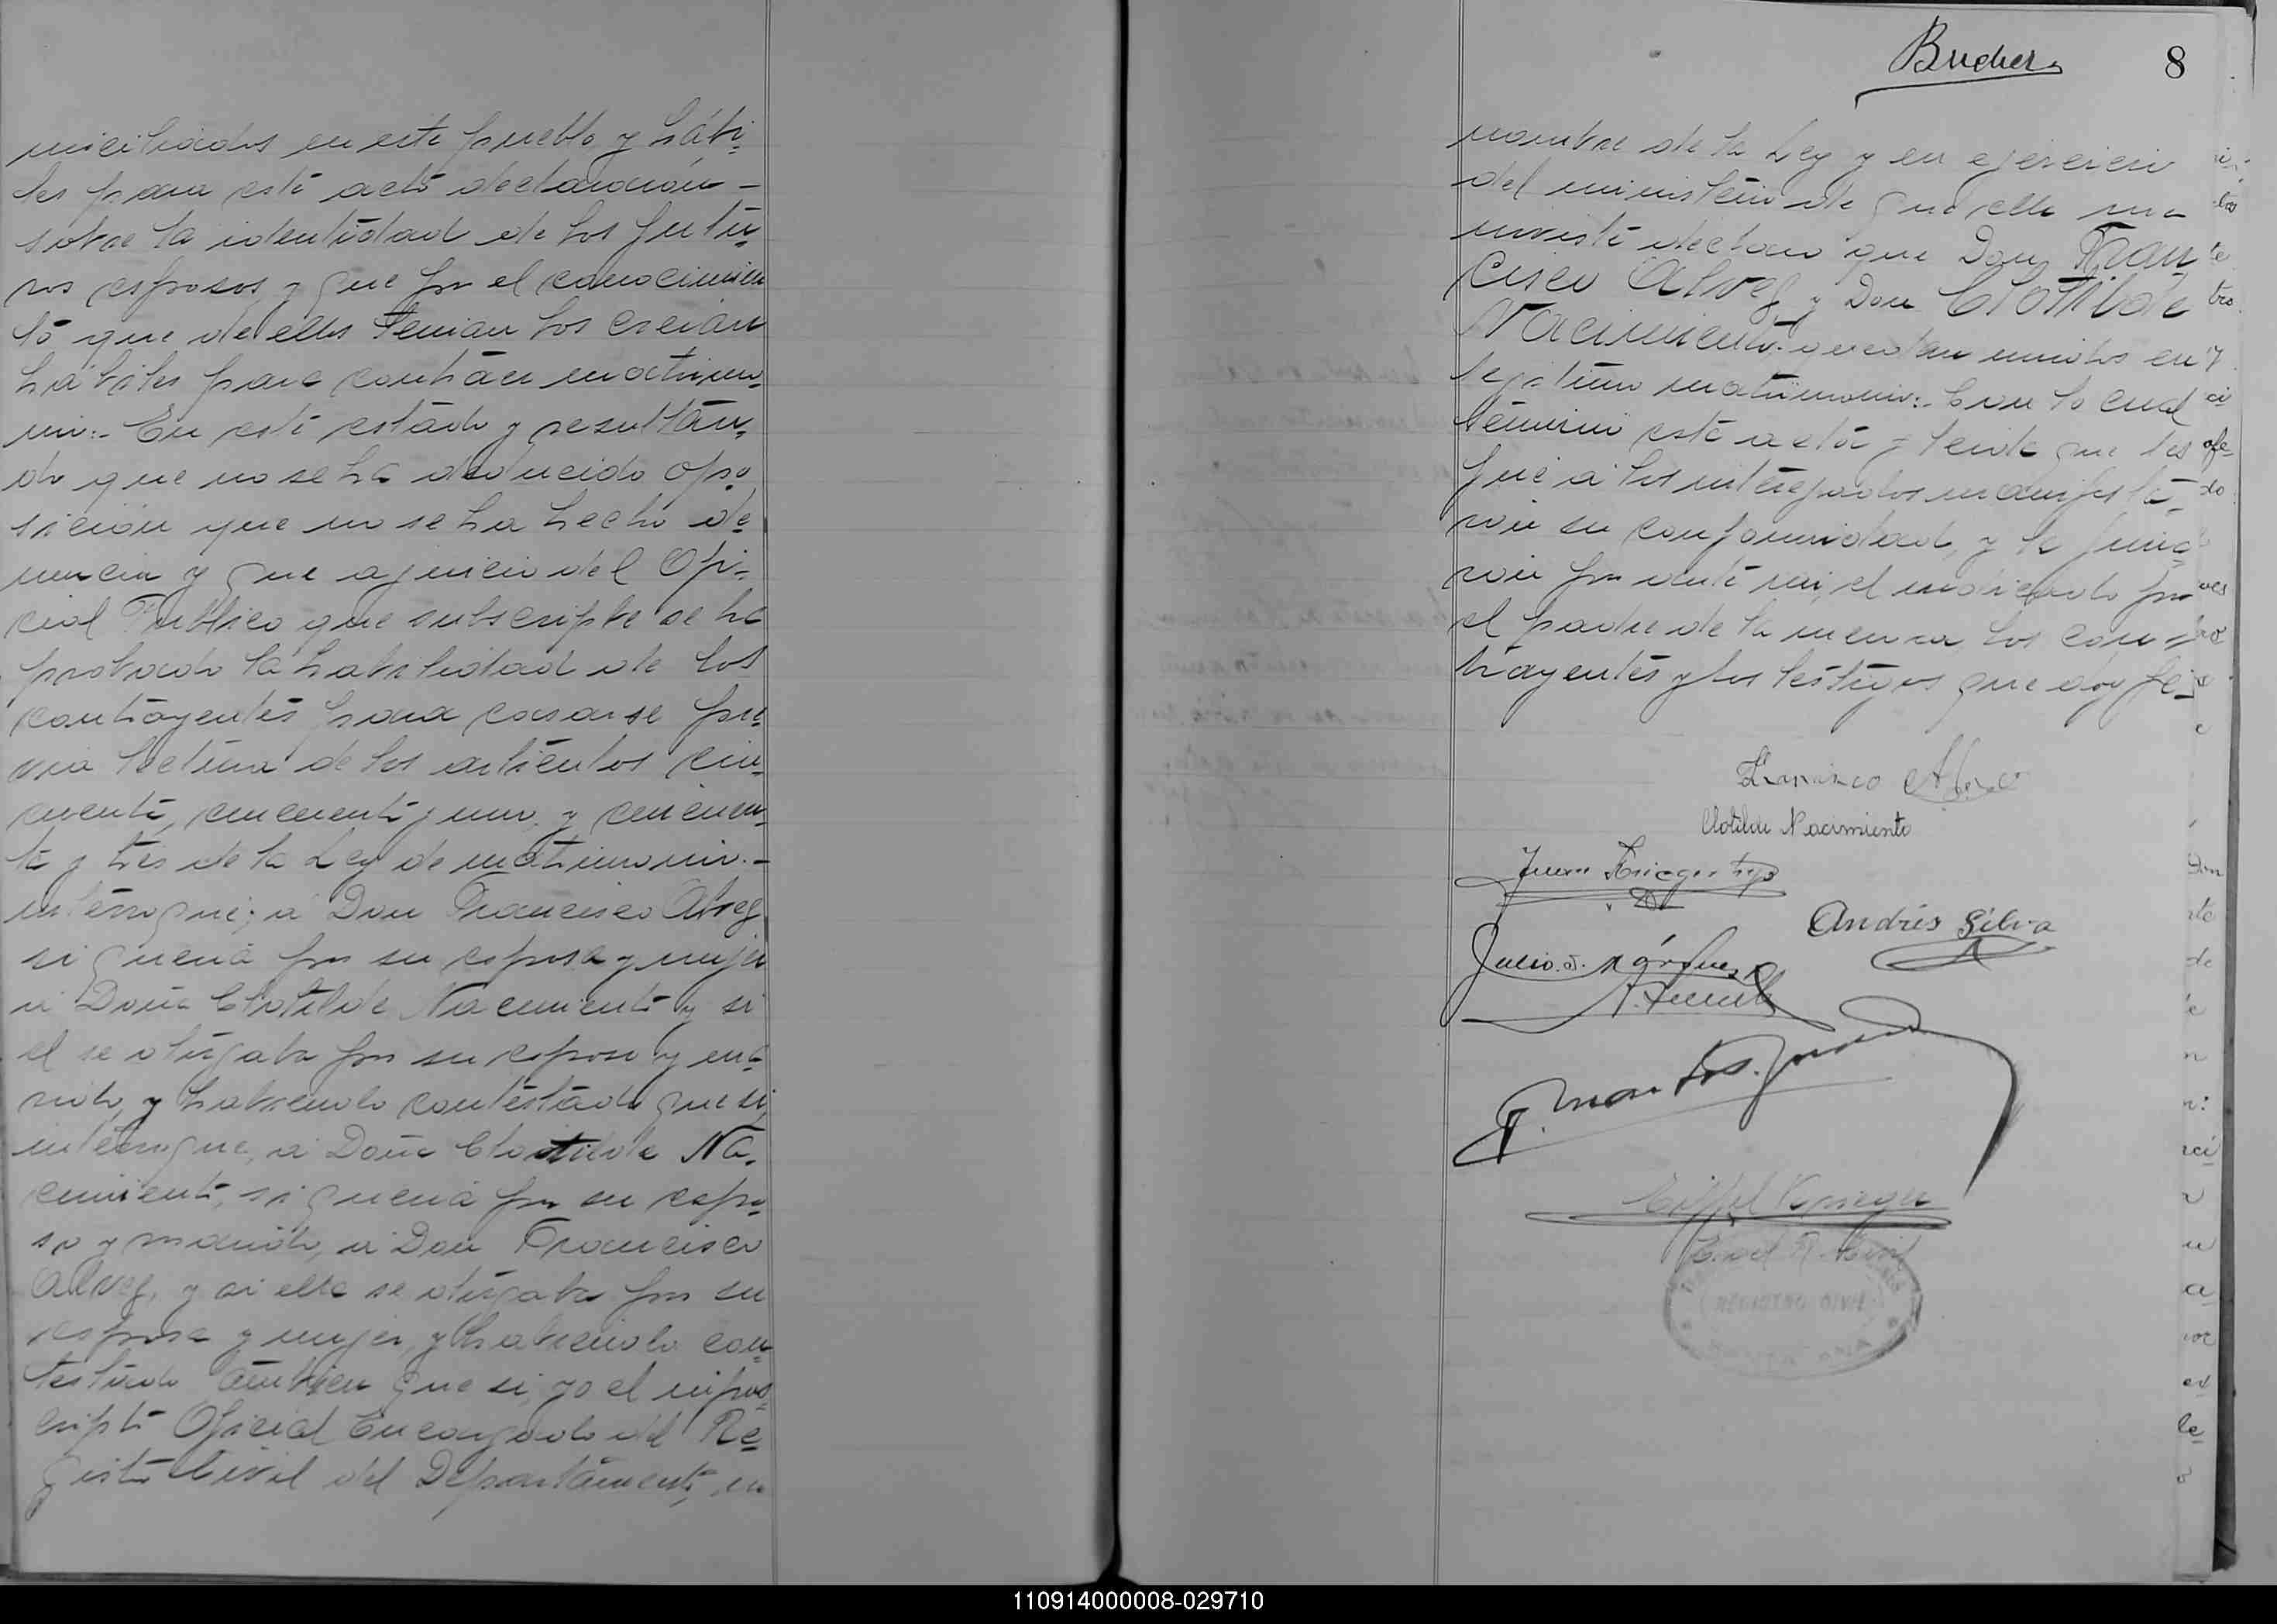 miciliados en este pueblo y hábi-
les para este acto declararon -
sobre la identidad de los futu-
ros esposos y que por el conocimien
to que de ellos tenian los creian
hábiles para contraer matrimo-
nio:- En este estado y resultan-
do que no se ha deducido opo-
sicion que no se ha hecho de-
nuncia y que a juicio del Ofi-
cial Publico que subscripbe se ha
probado la habilidad de los
contrayentes para casarse pre-
via lectura de los articulos cin-
cuenta, cincuenta y uno, y cincuen-
ta y tres de la Ley de matrimonio.-
interrogué, a Don Francisco Alvez
si queria por su esposa y mujer
a Doña Clotilde Nacimiento y si
el se obligaba por su esposo y ma-
rido, y habiendo contestado que si,
interrogue, a Doña Clotilde Na-
cimiento, si queria por su espo-
so y marido, a Don Francisco
Alvez, y si ella se obligaba por su
esposa y mujer, y habiendo con-
testado tambien que si, yo el infras-
cripto Oficial Encargado del Re-
gistro Civil del Departamento, en
Bucher
8
nombre de la Ley y en ejercicio
del ministerio de que ella me
inviste declaro que Don Fran
cisco Alvez y Doña Clotilde
Nacimiento quedan unidos en
legitimo matrimonio:- Con lo cual
termino este acto y leida que les
fué a los interesados manifesta-
ron su conformidad, y la firma
ron por ante mi, el indicado por
el padre de la menor los con-
trayentes y los testigos que doy fe-
Francisco Alvez
Clotilde Nacimiento
Juan Krieger hijo
Andrés Silva
Julio A. Márquez
Eiffel Krieger
E. del R. Civil
REGISTRO CIVIL
110914000008-029710